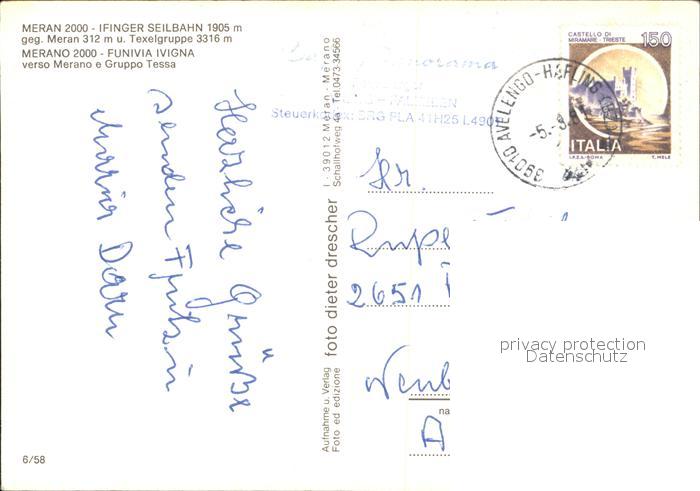 MERAN 2000 - IFINGER SEILBAHN 1905 m
geg. Meran 312 m u. Texelgruppe 3316 m
MERANO 2000 - FUNIVIA IVIGNA
verso Merano e Gruppo Tessa
Herzliche Grüße
senden
Maria
6/58
Aufnahme u. Verlag
Foto ed edizione
foto dieter drescher
I - 39012 Meran - Merano
Schallhofweg 4a - Tel. 0473-34566
panorama
Steuerk
PLA 41H25 L490
39010 AVELENGO-HAFLING
-5.-9.
CASTELLO DI
MIRAMARE - TRIESTE
150
ITALIA
I.P.Z.S.-ROMA T. MELE
Hr.
Rupe
2651
A
privacy protection
Datenschutz
na